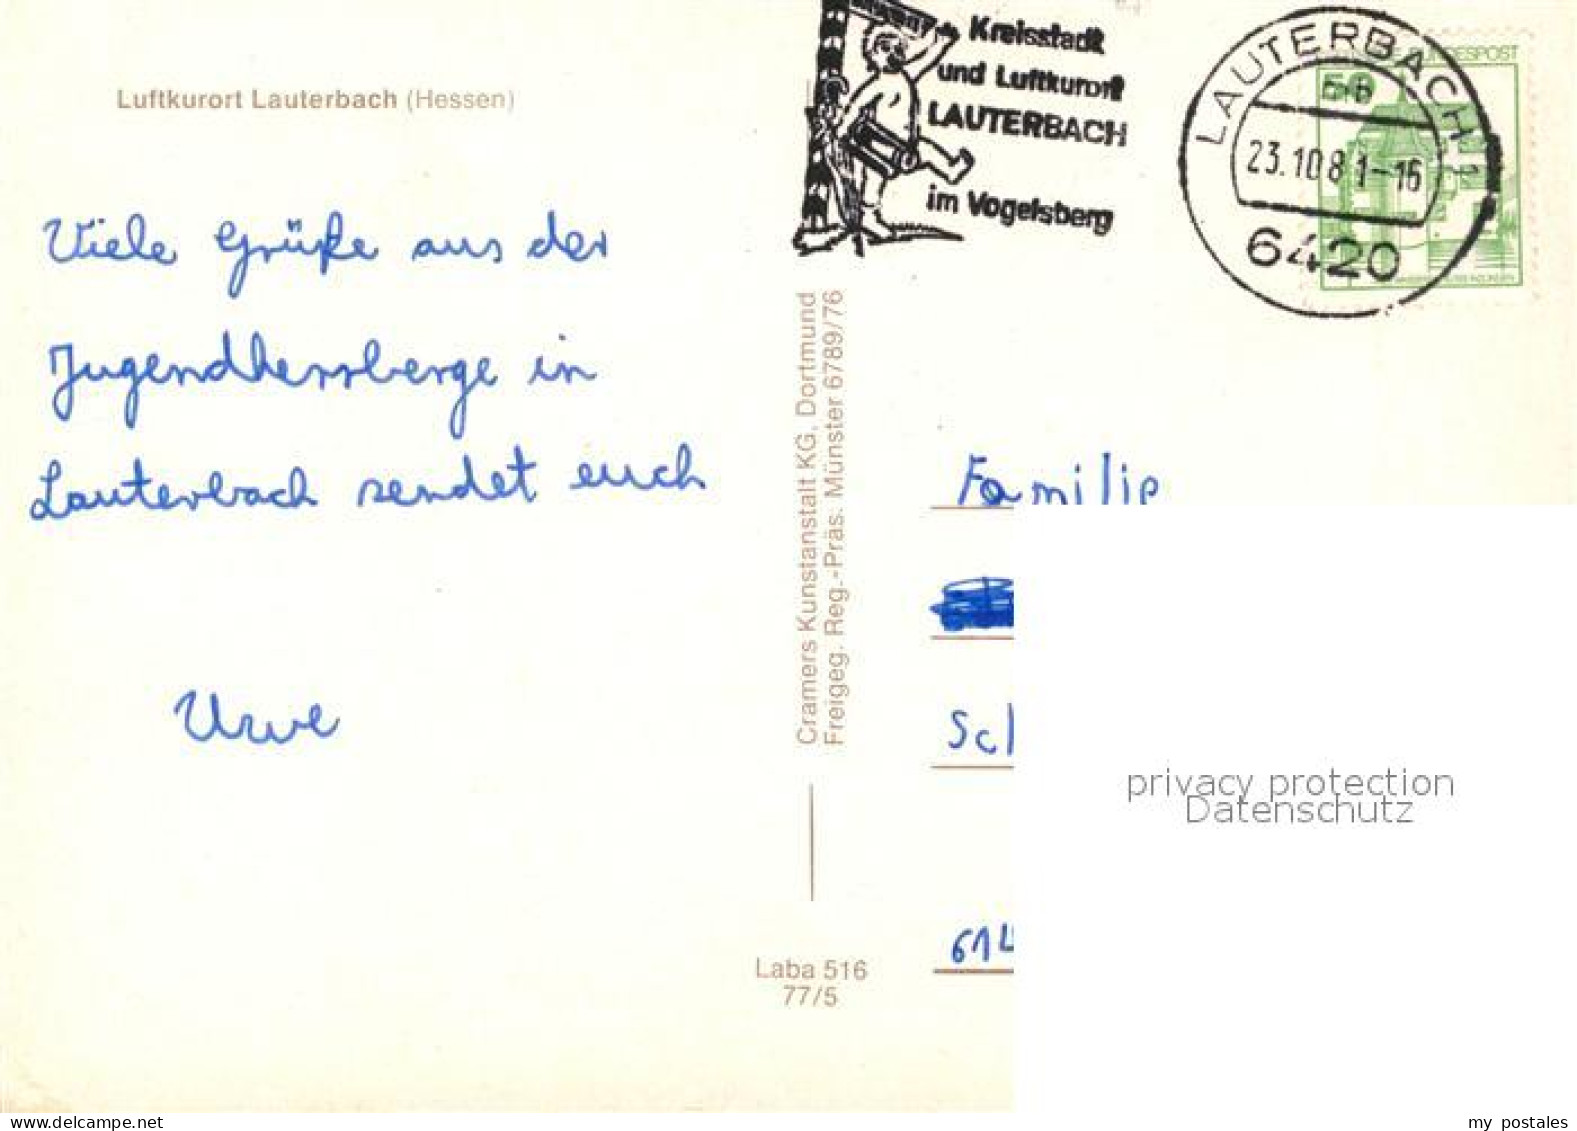 Luftkurort Lauterbach (Hessen)
Kreisstadt
und Luftkurort
LAUTERBACH
im Vogelsberg
LAUTERBACH 1
bb
23.10.81-16
6420
50
BUNDESPOST
Viele Grüße aus der
Jugendhersberge in
Lauterbach sendet euch
Uwe
Cramers Kunstanstalt KG, Dortmund
Freigeg. Reg.-Präs. Münster 6789/76
Laba 516
77/5
Familie
Sch
614
privacy protection
Datenschutz
www.delcampe.net
my_postales